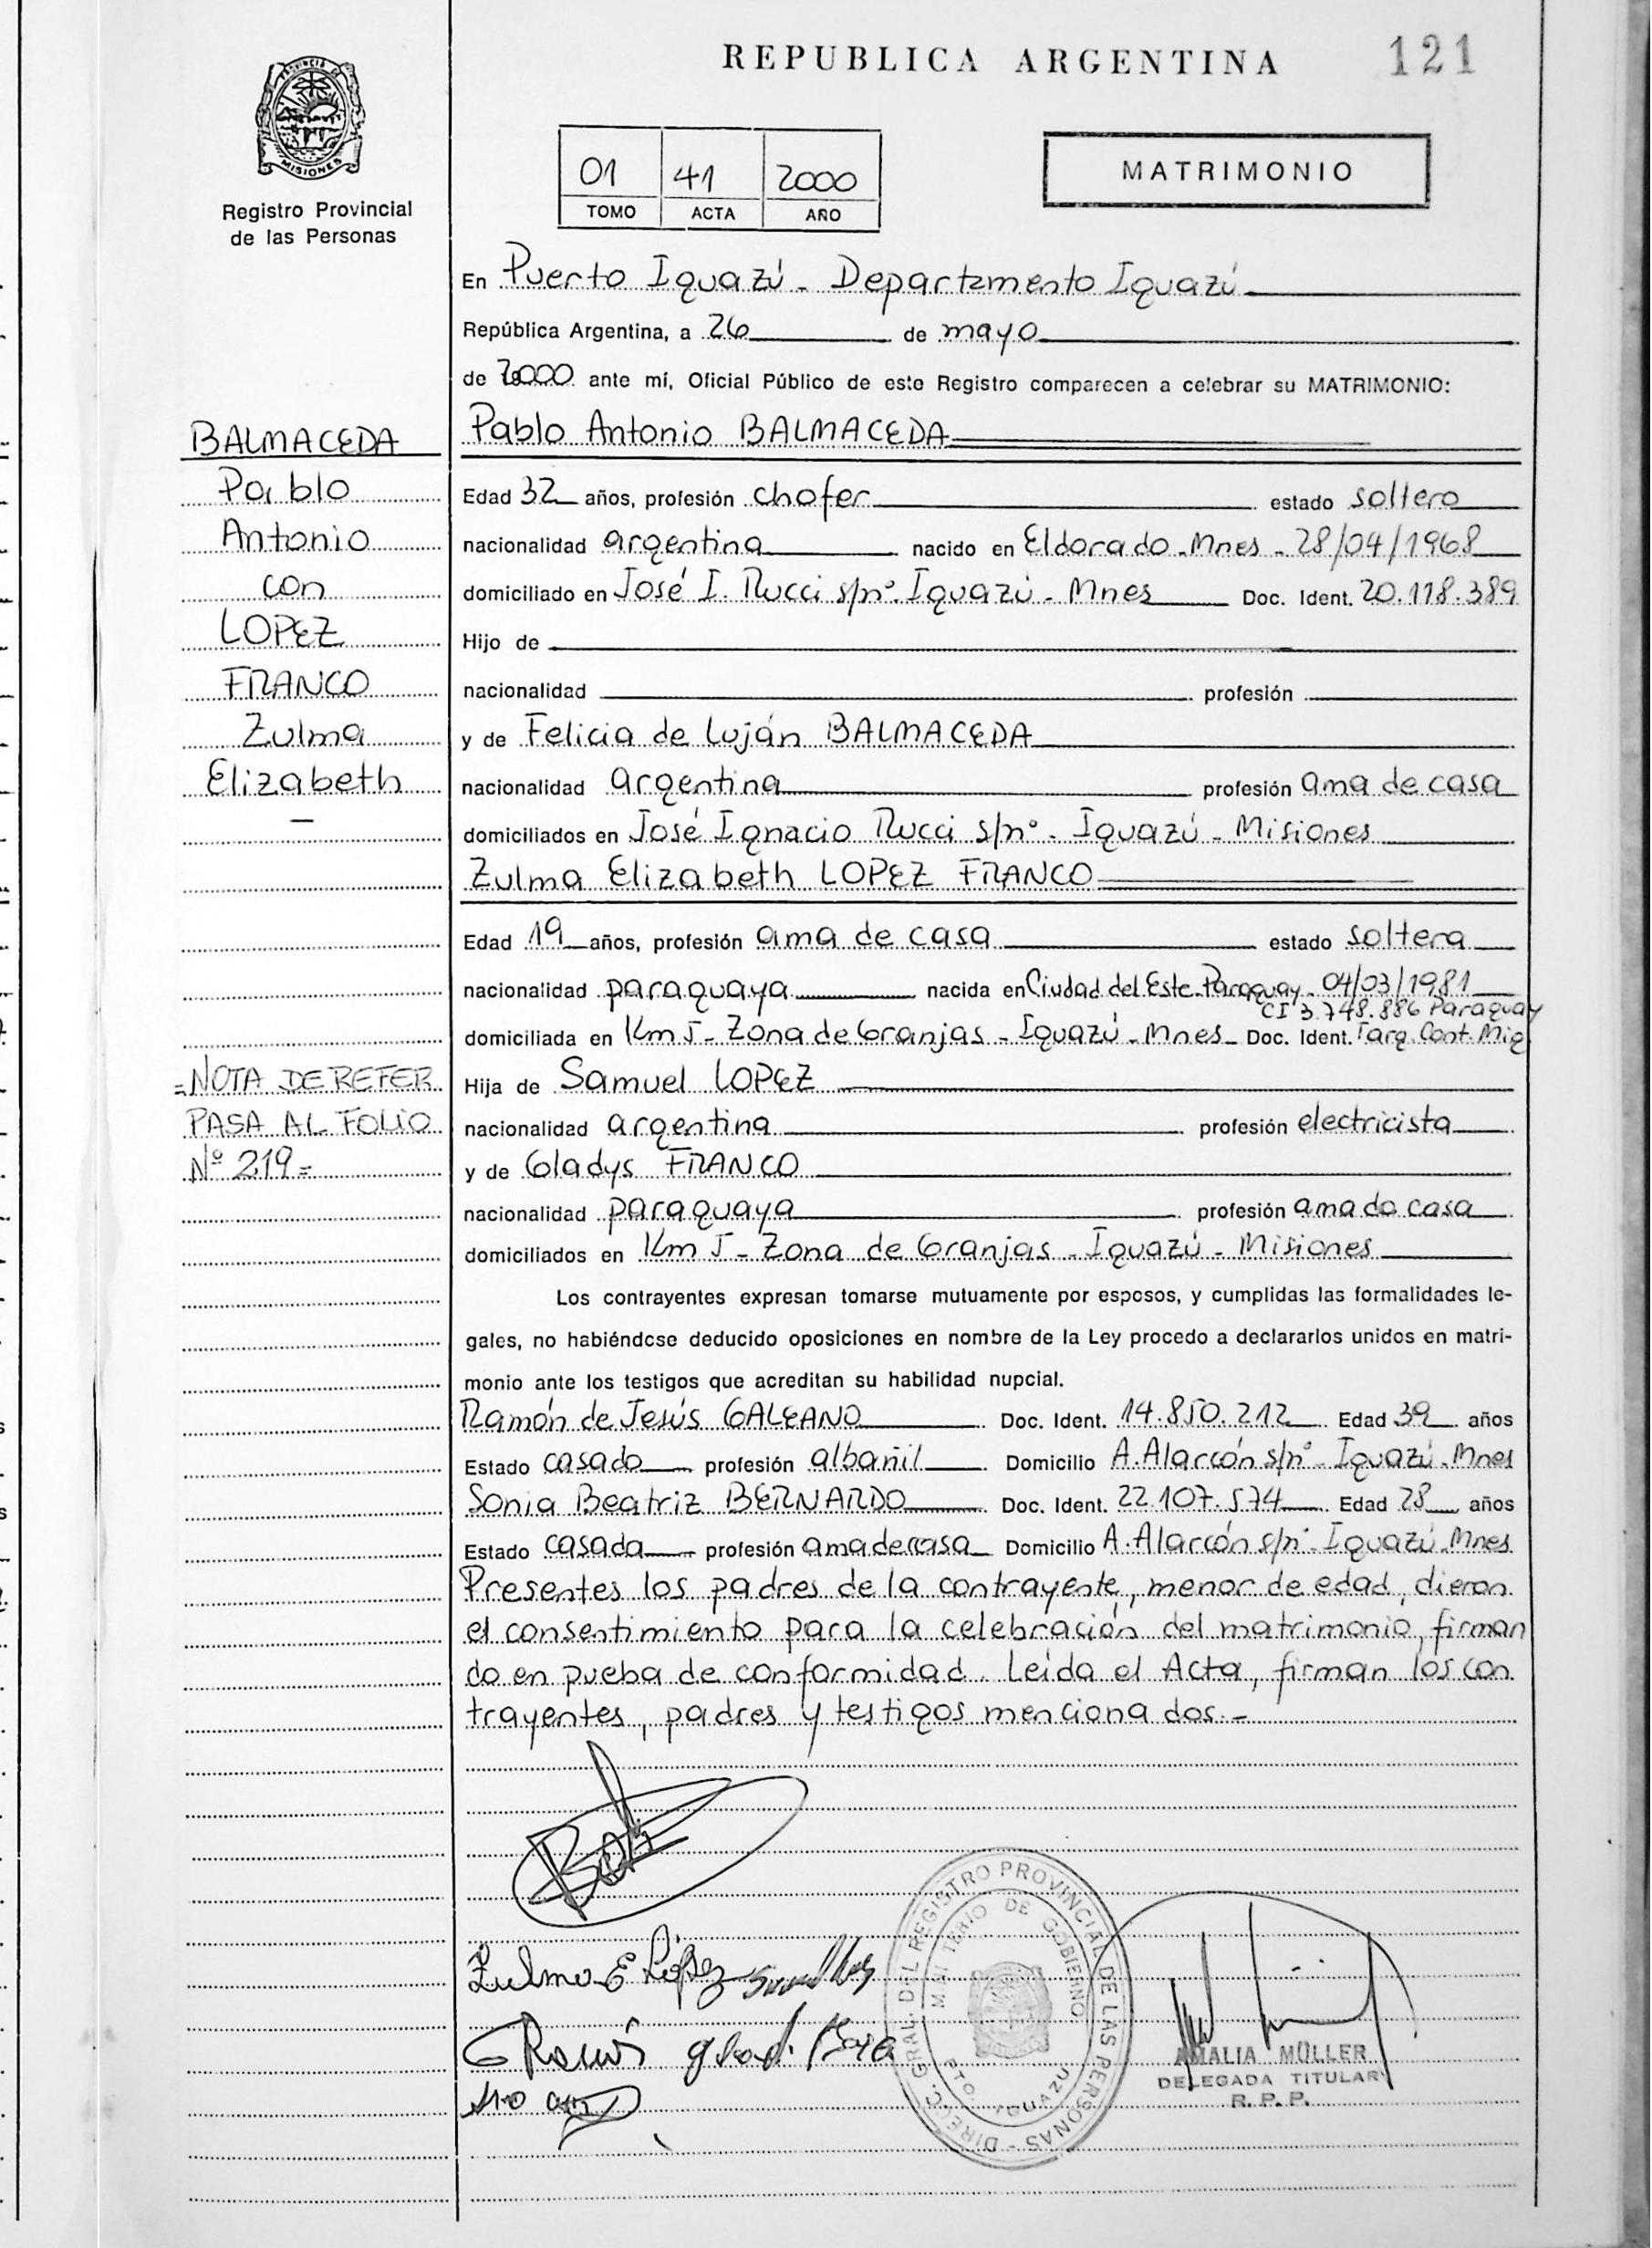 REPUBLICA ARGENTINA 121
PROVINCIA DE
MISIONES
Registro Provincial
de las Personas
01 41 2000
TOMO ACTA AÑO
MATRIMONIO
En Puerto Iguazú - Departamento Iguazú
República Argentina, a 26 de mayo
de 2000 ante mí, Oficial Público de este Registro comparecen a celebrar su MATRIMONIO:
Pablo Antonio BALMACEDA
Edad 32 años, profesión chofer estado soltero
nacionalidad argentina nacido en Eldorado - Mnes - 28/04/1968
domiciliado en José I. Rucci s/nº. Iguazú - Mnes Doc. Ident. 20.118.389
Hijo de
nacionalidad profesión
y de Felicia de Luján BALMACEDA
nacionalidad argentina profesión ama de casa
domiciliados en José Ignacio Rucci s/nº - Iguazú - Misiones
Zulma Elizabeth LOPEZ FRANCO
Edad 19 años, profesión ama de casa estado soltera
nacionalidad paraguaya nacida en Ciudad del Este - Paraguay - 04/03/1981
CI 3.748.886 Paraguay
domiciliada en Km 5 - Zona de Granjas - Iguazú - Mnes - Doc. Ident. Tarq. Cont. Mig
Hija de Samuel LOPEZ
nacionalidad argentina profesión electricista
y de Gladys FRANCO
nacionalidad paraguaya profesión ama de casa
domiciliados en Km 5 - Zona de Granjas - Iguazú - Misiones
Los contrayentes expresan tomarse mutuamente por esposos, y cumplidas las formalidades le-
gales, no habiéndose deducido oposiciones en nombre de la Ley procedo a declararlos unidos en matri-
monio ante los testigos que acreditan su habilidad nupcial.
Ramón de Jesús GALEANO Doc. Ident. 14.850.212 Edad 39 años
Estado casado profesión albañil Domicilio A. Alarcón s/nº - Iguazú - Mnes
Sonia Beatriz BERNARDO Doc. Ident. 22.107.574 Edad 28 años
Estado casada profesión ama de casa Domicilio A. Alarcón s/nº Iguazú Mnes
Presentes los padres de la contrayente, menor de edad, dieron
el consentimiento para la celebración del matrimonio, firman
do en pueba de conformidad. Leída el Acta, firman los con
trayentes, padres y testigos mencionados.-
BALMACEDA
Pablo
Antonio
con
LOPEZ
FRANCO
Zulma
Elizabeth
-
=NOTA DE REFER
PASA AL FOLIO
Nº 219=
Zulma E López
DIREC. GRAL. DEL REGISTRO PROVINCIAL DE LAS PERSONAS -
DE GOBIERNO
PTO. IGUAZU
AMALIA MÜLLER
DELEGADA TITULAR
R. P. P.